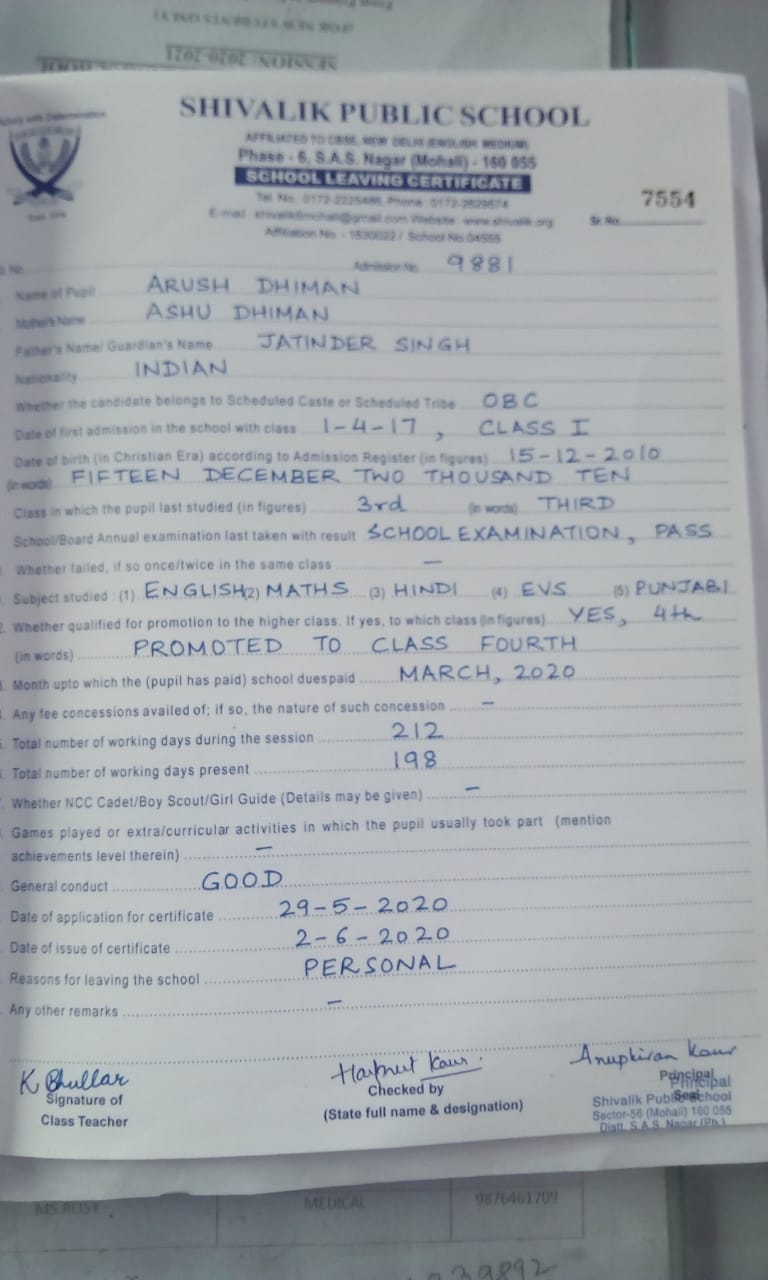 (FOR NEW STUDENTS ONLY)
SESSION: 2020-2021
SHIVALIK PUBLIC SCHOOL
AFFILIATED TO CBSE, NEW DELHI (ENGLISH MEDIUM)
Phase - 6, S.A.S. Nagar (Mohali) - 160 055
SCHOOL LEAVING CERTIFICATE
Tel. No. 0172-2225486, Phone : 0172-
7554
Sr. No.
Website : www.shivalik.org
Affiliation No. - 1630022 / School No.
Admission No. 9881
Name of Pupil ARUSH DHIMAN
Mother's Name ASHU DHIMAN
Father's Name/ Guardian's Name JATINDER SINGH
Nationality INDIAN
Whether the candidate belongs to Scheduled Caste or Scheduled Tribe OBC
Date of first admission in the school with class 1-4-17, CLASS I
Date of birth (in Christian Era) according to Admission Register (in figures) 15-12-2010
(in words) FIFTEEN DECEMBER TWO THOUSAND TEN
Class in which the pupil last studied (in figures) 3rd (in words) THIRD
School/Board Annual examination last taken with result SCHOOL EXAMINATION, PASS
Whether failed, if so once/twice in the same class —
Subject studied : (1) ENGLISH (2) MATHS (3) HINDI (4) EVS (5) PUNJABI
Whether qualified for promotion to the higher class. If yes, to which class (in figures) YES, 4th
(in words) PROMOTED TO CLASS FOURTH
Month upto which the (pupil has paid) school duespaid MARCH, 2020
Any fee concessions availed of; if so, the nature of such concession —
Total number of working days during the session 212
Total number of working days present 198
Whether NCC Cadet/Boy Scout/Girl Guide (Details may be given) —
Games played or extra/curricular activities in which the pupil usually took part (mention
achievements level therein) —
General conduct GOOD
Date of application for certificate 29-5-2020
Date of issue of certificate 2-6-2020
Reasons for leaving the school PERSONAL
Any other remarks —
K Bhullar
Signature of
Class Teacher
Harpreet Kaur.
Checked by
(State full name & designation)
Anupkiran Kaur
Principal
Seal
Principal
Shivalik Public School
Sector-56 (Mohali) 160 055
Distt. S.A.S. Nagar (Pb.)
MS.ROSY
MEDICAL
9876461709
239892